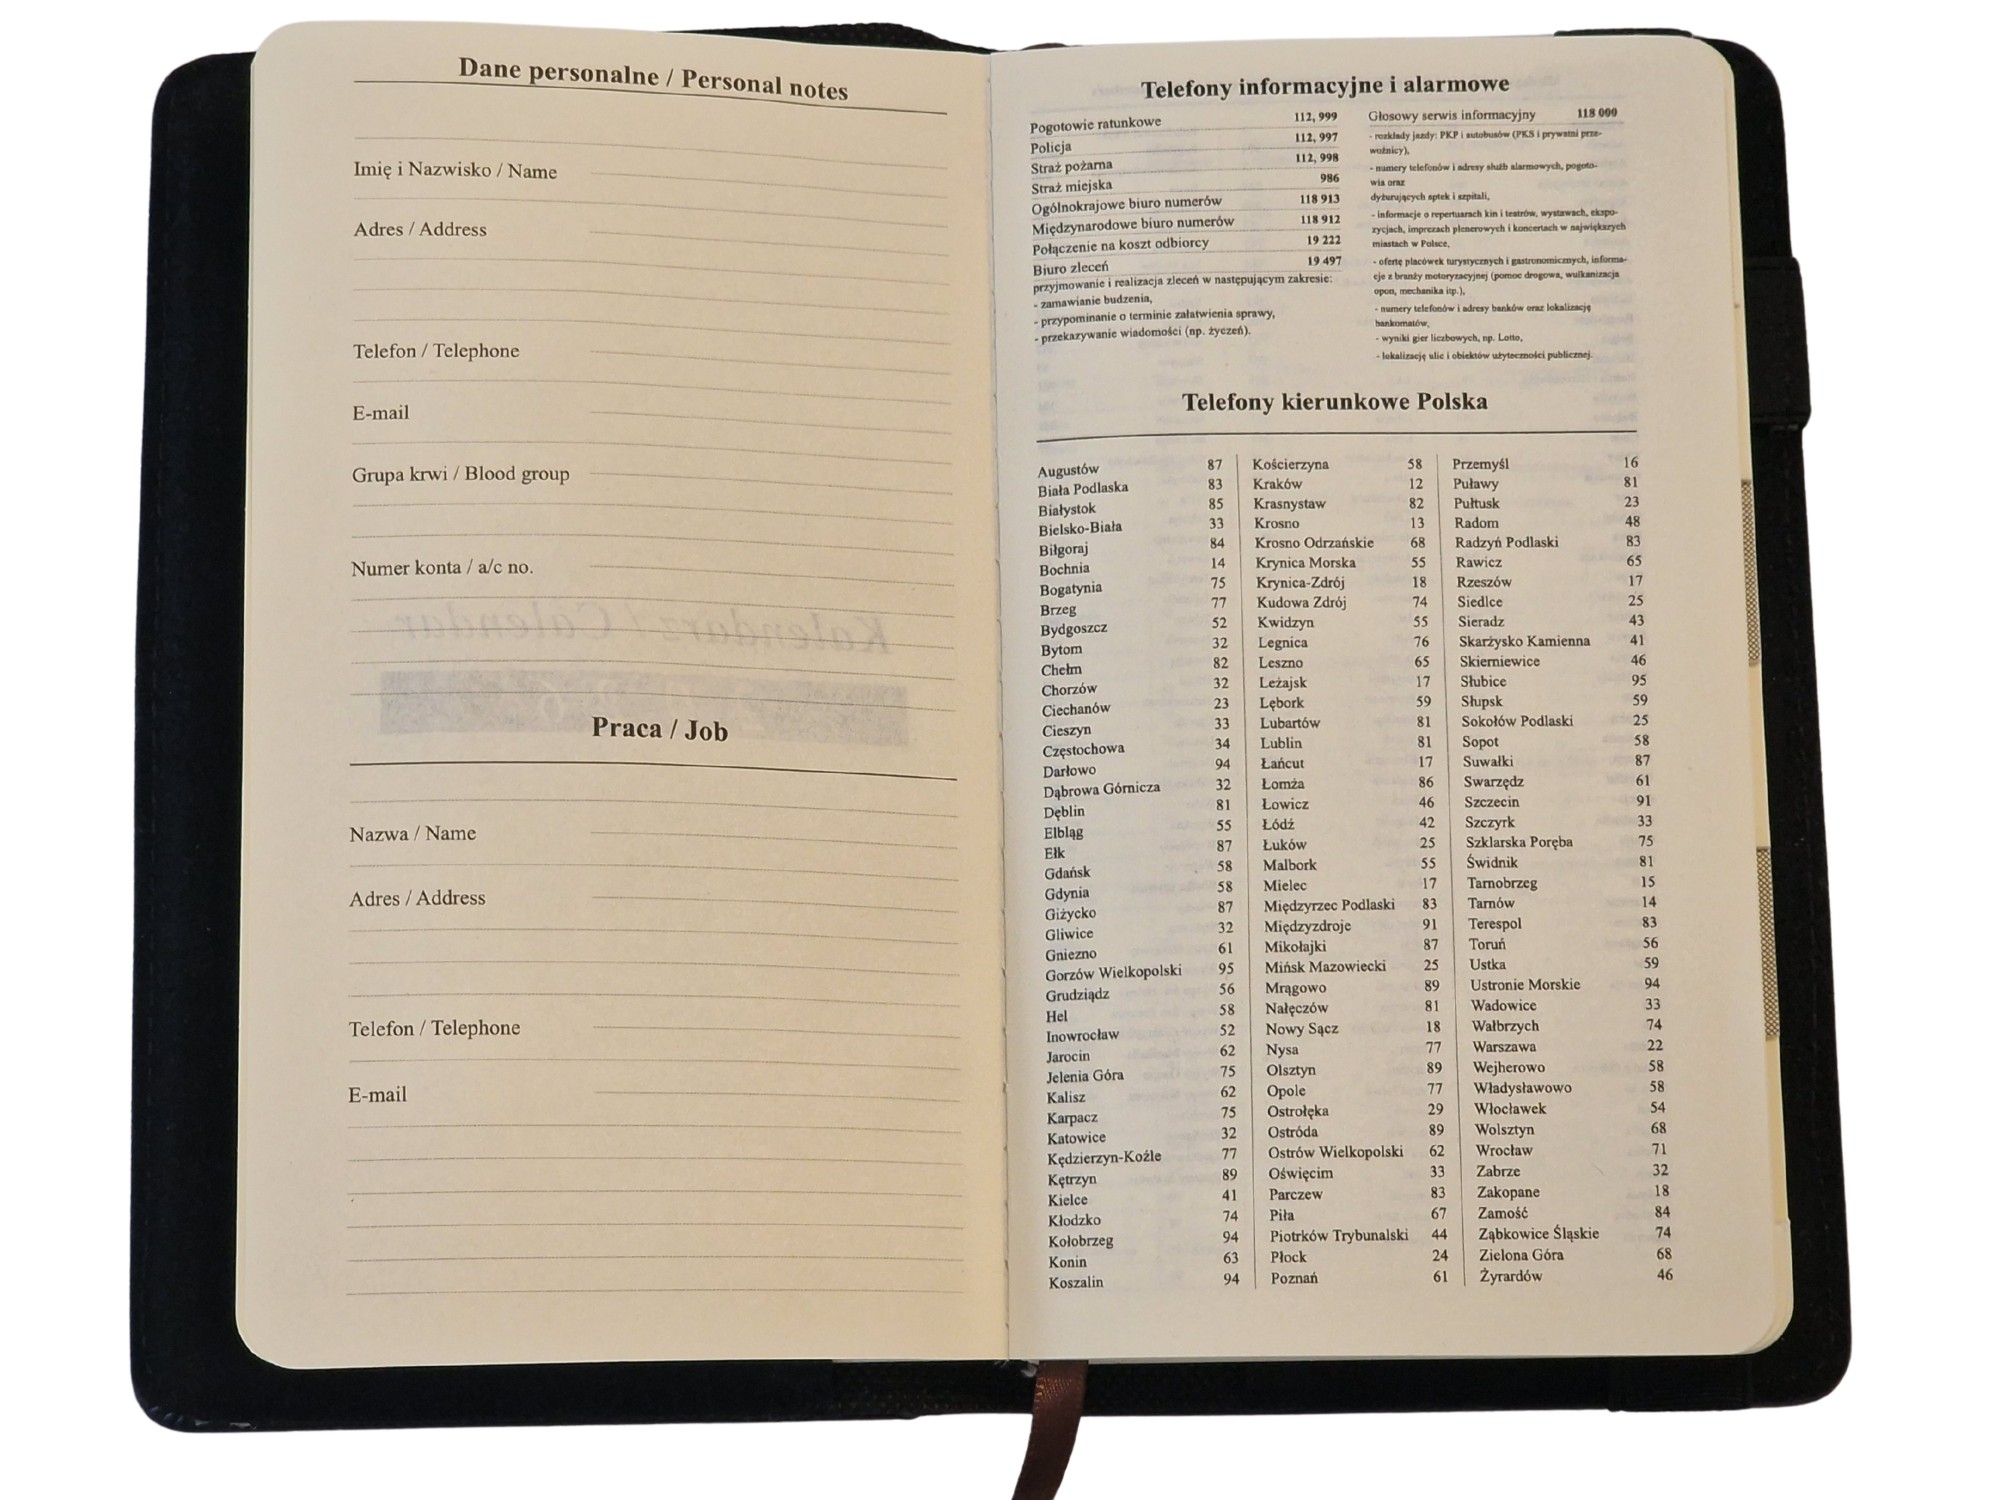 Dane personalne / Personal notes
Imię i Nazwisko / Name
Adres / Address
Telefon / Telephone
E-mail
Grupa krwi / Blood group
Numer konta / a/c no.
Praca / Job
Nazwa / Name
Adres / Address
Telefon / Telephone
E-mail
Telefony informacyjne i alarmowe
Pogotowie ratunkowe 112, 999
Policja 112, 997
Straż pożarna 112, 998
Straż miejska 986
Ogólnokrajowe biuro numerów 118 913
Międzynarodowe biuro numerów 118 912
Połączenie na koszt odbiorcy 19 222
Biuro zleceń 19 497
przyjmowanie i realizacja zleceń w następującym zakresie:
- zamawianie budzenia,
- przypominanie o terminie załatwienia sprawy,
- przekazywanie wiadomości (np. życzeń).
Głosowy serwis informacyjny 118 000
- rozkłady jazdy: PKP i autobusów (PKS i prywatni prze-
woźnicy),
- numery telefonów i adresy służb alarmowych, pogoto-
wia oraz
dyżurujących aptek i szpitali,
- informacje o repertuarach kin i teatrów, wystawach, ekspo-
zycjach, imprezach plenerowych i koncertach w największych
miastach w Polsce,
- ofertę placówek turystycznych i gastronomicznych, informa-
cje z branży motoryzacyjnej (pomoc drogowa, wulkanizacja
opon, mechanika itp.),
- numery telefonów i adresy banków oraz lokalizację
bankomatów,
- wyniki gier liczbowych, np. Lotto,
- lokalizację ulic i obiektów użyteczności publicznej.
Telefony kierunkowe Polska
Augustów 87
Biała Podlaska 83
Białystok 85
Bielsko-Biała 33
Biłgoraj 84
Bochnia 14
Bogatynia 75
Brzeg 77
Bydgoszcz 52
Bytom 32
Chełm 82
Chorzów 32
Ciechanów 23
Cieszyn 33
Częstochowa 34
Darłowo 94
Dąbrowa Górnicza 32
Dęblin 81
Elbląg 55
Ełk 87
Gdańsk 58
Gdynia 58
Giżycko 87
Gliwice 32
Gniezno 61
Gorzów Wielkopolski 95
Grudziądz 56
Hel 58
Inowrocław 52
Jarocin 62
Jelenia Góra 75
Kalisz 62
Karpacz 75
Katowice 32
Kędzierzyn-Koźle 77
Kętrzyn 89
Kielce 41
Kłodzko 74
Kołobrzeg 94
Konin 63
Koszalin 94
Kościerzyna 58
Kraków 12
Krasnystaw 82
Krosno 13
Krosno Odrzańskie 68
Krynica Morska 55
Krynica-Zdrój 18
Kudowa Zdrój 74
Kwidzyn 55
Legnica 76
Leszno 65
Leżajsk 17
Lębork 59
Lubartów 81
Lublin 81
Łańcut 17
Łomża 86
Łowicz 46
Łódź 42
Łuków 25
Malbork 55
Mielec 17
Międzyrzec Podlaski 83
Międzyzdroje 91
Mikołajki 87
Mińsk Mazowiecki 25
Mrągowo 89
Nałęczów 81
Nowy Sącz 18
Nysa 77
Olsztyn 89
Opole 77
Ostrołęka 29
Ostróda 89
Ostrów Wielkopolski 62
Oświęcim 33
Parczew 83
Piła 67
Piotrków Trybunalski 44
Płock 24
Poznań 61
Przemyśl 16
Puławy 81
Pułtusk 23
Radom 48
Radzyń Podlaski 83
Rawicz 65
Rzeszów 17
Siedlce 25
Sieradz 43
Skarżysko Kamienna 41
Skierniewice 46
Słubice 95
Słupsk 59
Sokołów Podlaski 25
Sopot 58
Suwałki 87
Swarzędz 61
Szczecin 91
Szczyrk 33
Szklarska Poręba 75
Świdnik 81
Tarnobrzeg 15
Tarnów 14
Terespol 83
Toruń 56
Ustka 59
Ustronie Morskie 94
Wadowice 33
Wałbrzych 74
Warszawa 22
Wejherowo 58
Władysławowo 58
Włocławek 54
Wolsztyn 68
Wrocław 71
Zabrze 32
Zakopane 18
Zamość 84
Ząbkowice Śląskie 74
Zielona Góra 68
Żyrardów 46